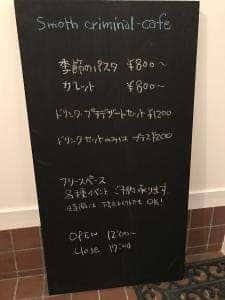 Smoth criminal-cafe
季節のパスタ ¥800〜
ガレット ¥800〜
ドリンク・プチデザートセット ¥1200
ドリンクセットのみは プラス¥200
フリースペース
各種イベント ご予約承ります。
OPEN 12:00〜
CLOSE 17:00